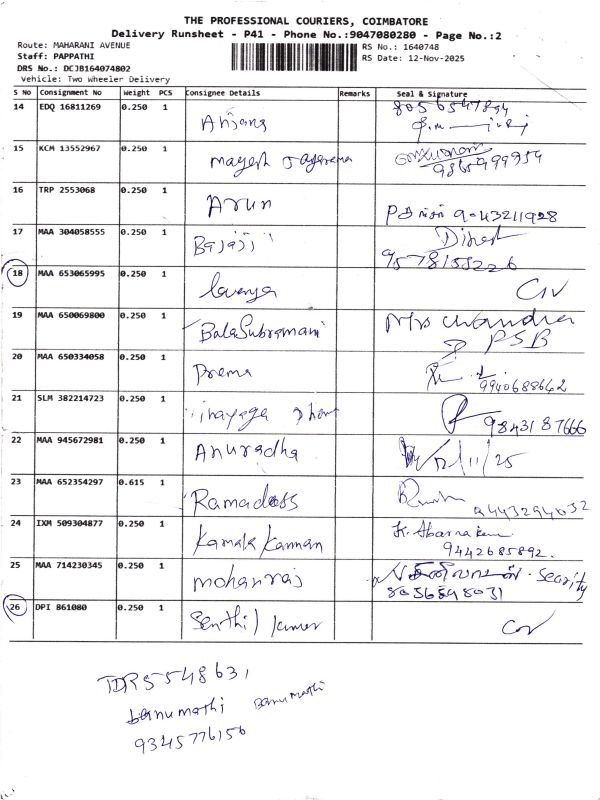 THE PROFESSIONAL COURIERS, COIMBATORE
Delivery Runsheet - P41 - Phone No.:9047080280 - Page No.:2
Route: MAHARANI AVENUE
Staff: PAPPATHI
DRS No.: DCJB164074802
Vehicle: Two Wheeler Delivery
RS No.: 1640748
RS Date: 12-Nov-2025
S No Consignment No Weight PCS Consignee Details Remarks Seal & Signature
14 EDQ 16811269 0.250 1 Anjana 8056547894
15 KCM 13552967 0.250 1 mayesh 9865999954
16 TRP 2553068 0.250 1 Arun 9043211928
17 MAA 304058555 0.250 1 Balaji Dinesh
9578155226
18 MAA 653065995 0.250 1 lavanya
19 MAA 650069800 0.250 1 BalaSubramani Mrs chandra
PSB
20 MAA 650334058 0.250 1 Prema 9940688642
21 SLM 382214723 0.250 1 9843187666
22 MAA 945672981 0.250 1 Anuradha 12/11/25
23 MAA 652354297 0.615 1 Ramadoss 9443294032
24 IXM 509304877 0.250 1 Kamala Kannan K. Abarna
9442685892.
25 MAA 714230345 0.250 1 mohanraj Secrity
8056898031
26 DPI 861080 0.250 1 Senthil kumar
TDR5548631
banumathi Banumathi
9345776156